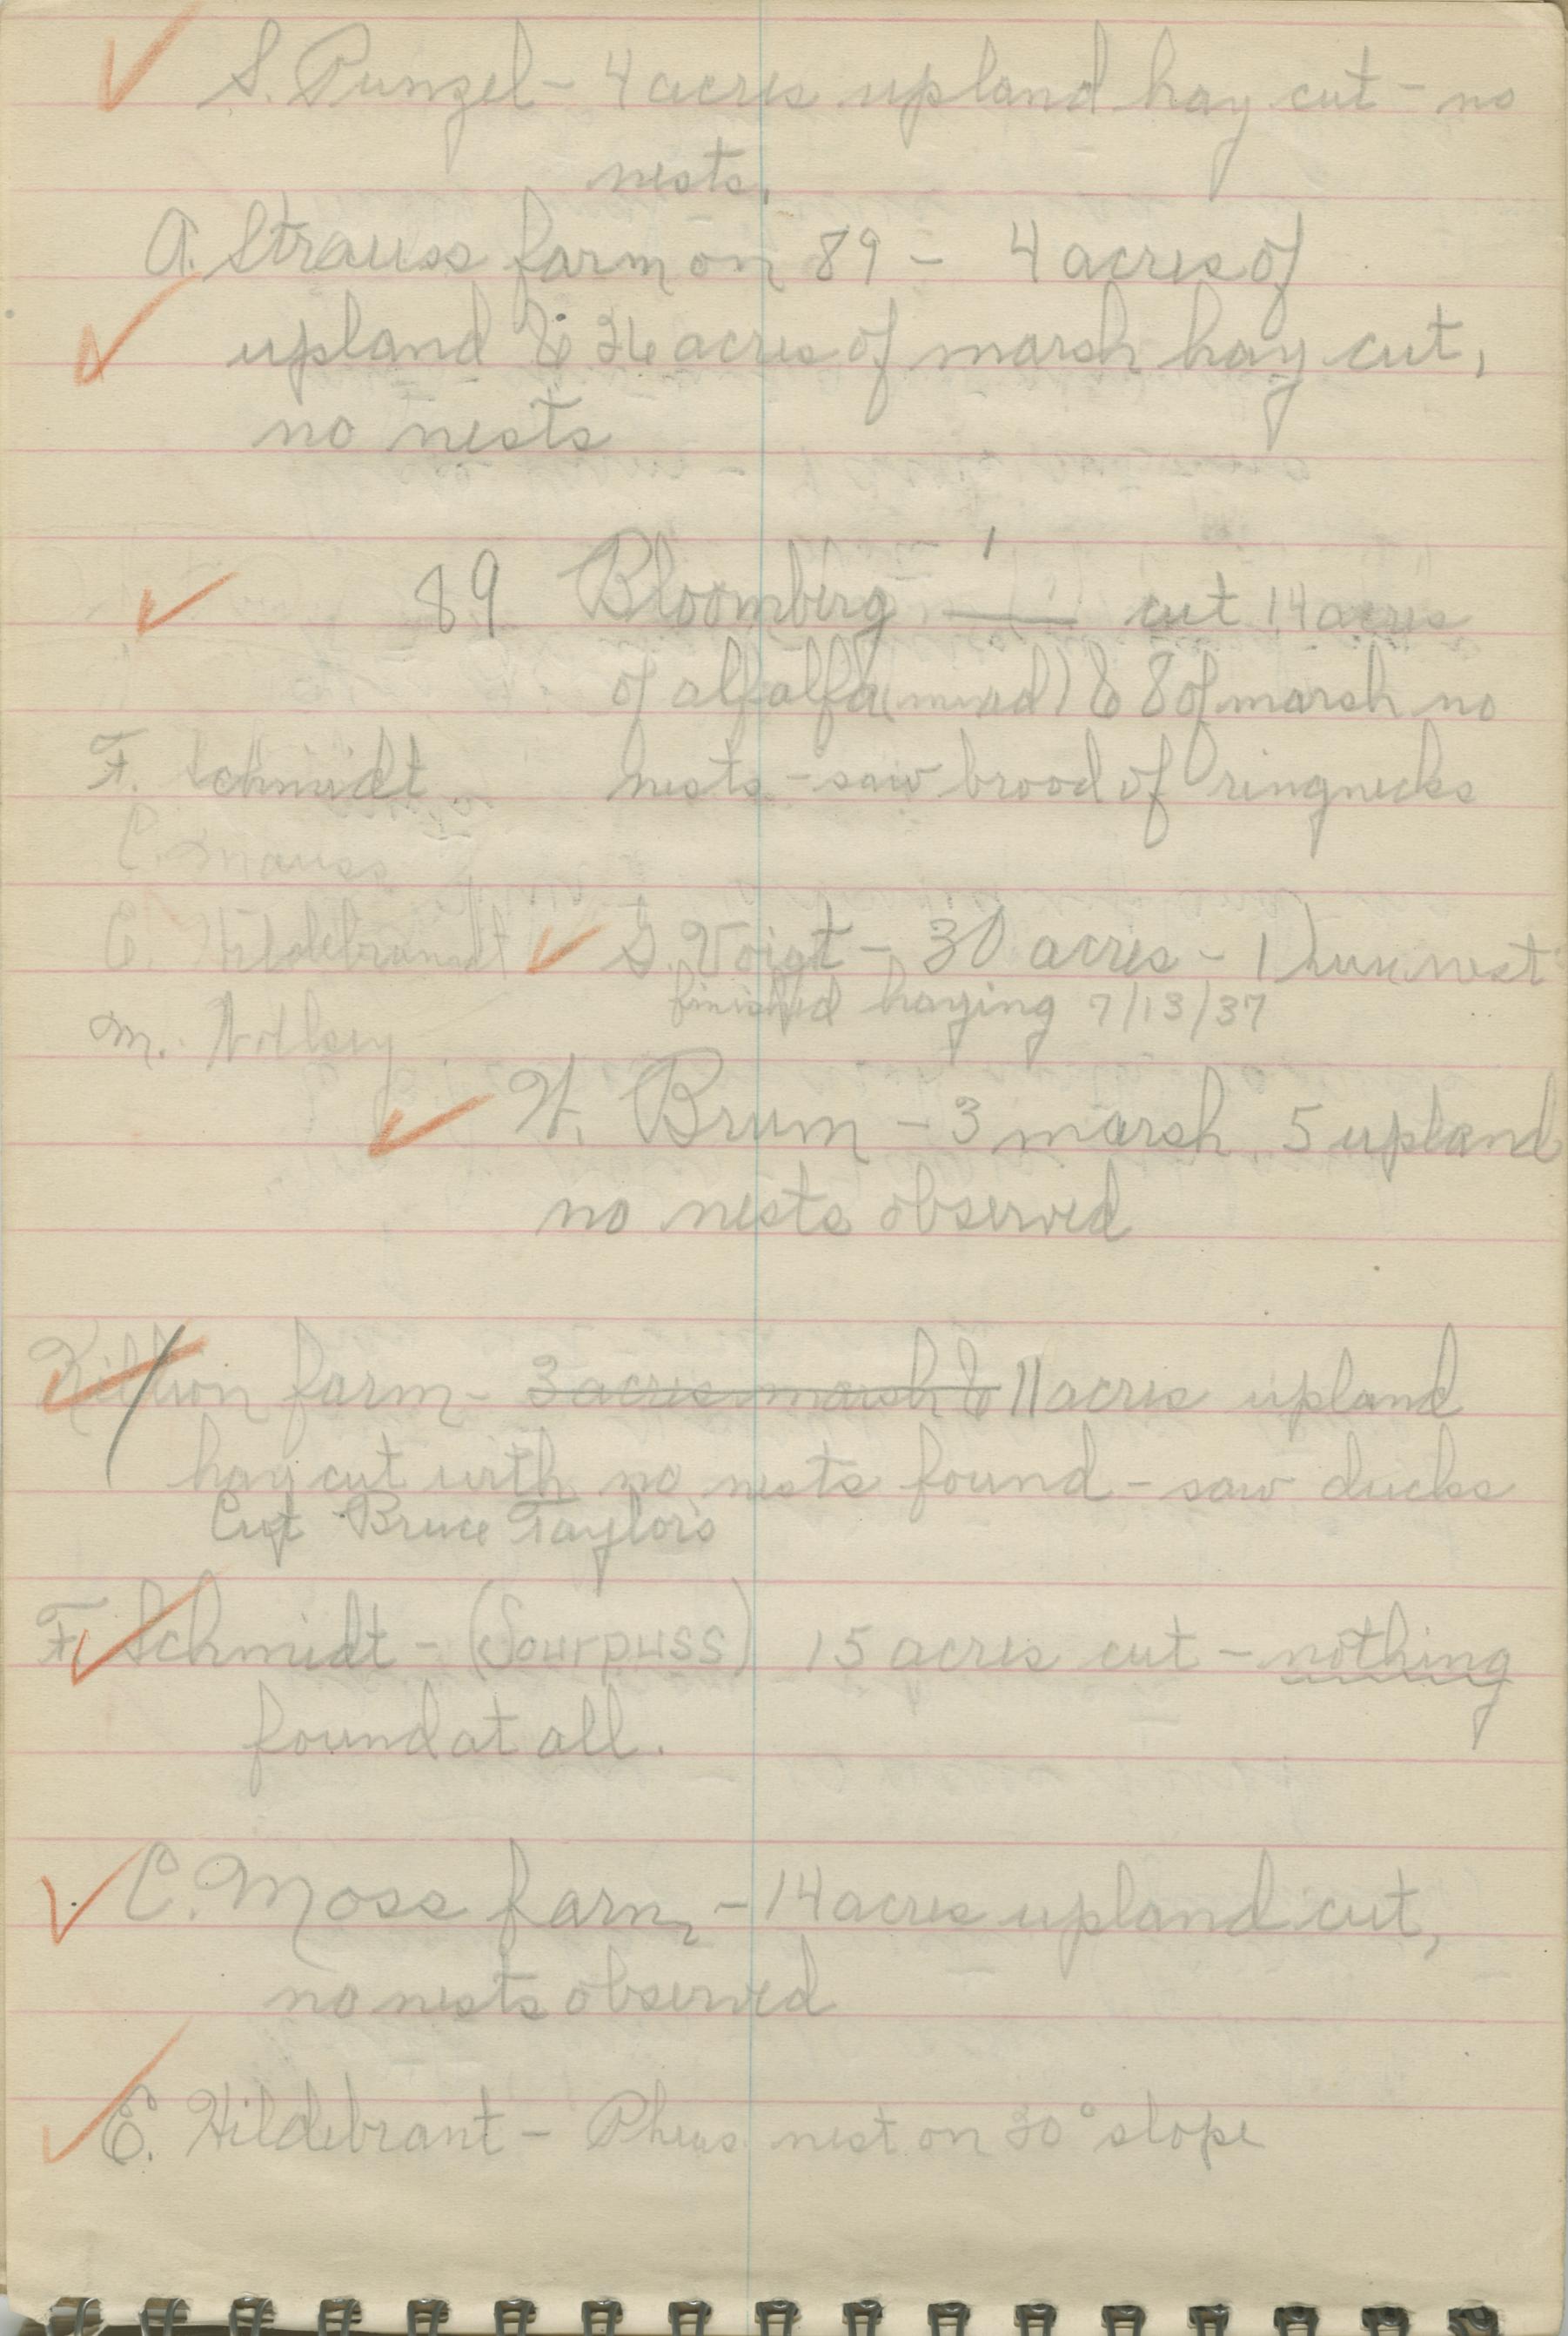 S. Punzel - 4 acres upland hay cut - no
nests.
A. Strauss farm on 89 - 4 acres of
upland & 26 acres of marsh hay cut,
no nests
89 Bloomberg cut 14 acres
of alfalfa (mixed) & 8 of marsh no
F. Schmidt nests - saw brood of ringnecks
C.
E. Hildebrandt S. Voigt - 30 acres - 1 nest
finished haying 7/13/37
M.
H. Brum - 3 marsh 5 upland
no nests observed
farm - 3 acres marsh & 11 acres upland
hay cut with no nests found - saw ducks
Bruce Taylors
F. Schmidt - (Sourpuss) 15 acres cut - nothing
found at all.
C. Moss farm, - 14 acres upland cut,
no nests observed
E. Hildebrant - Pheas nest on 30° slope